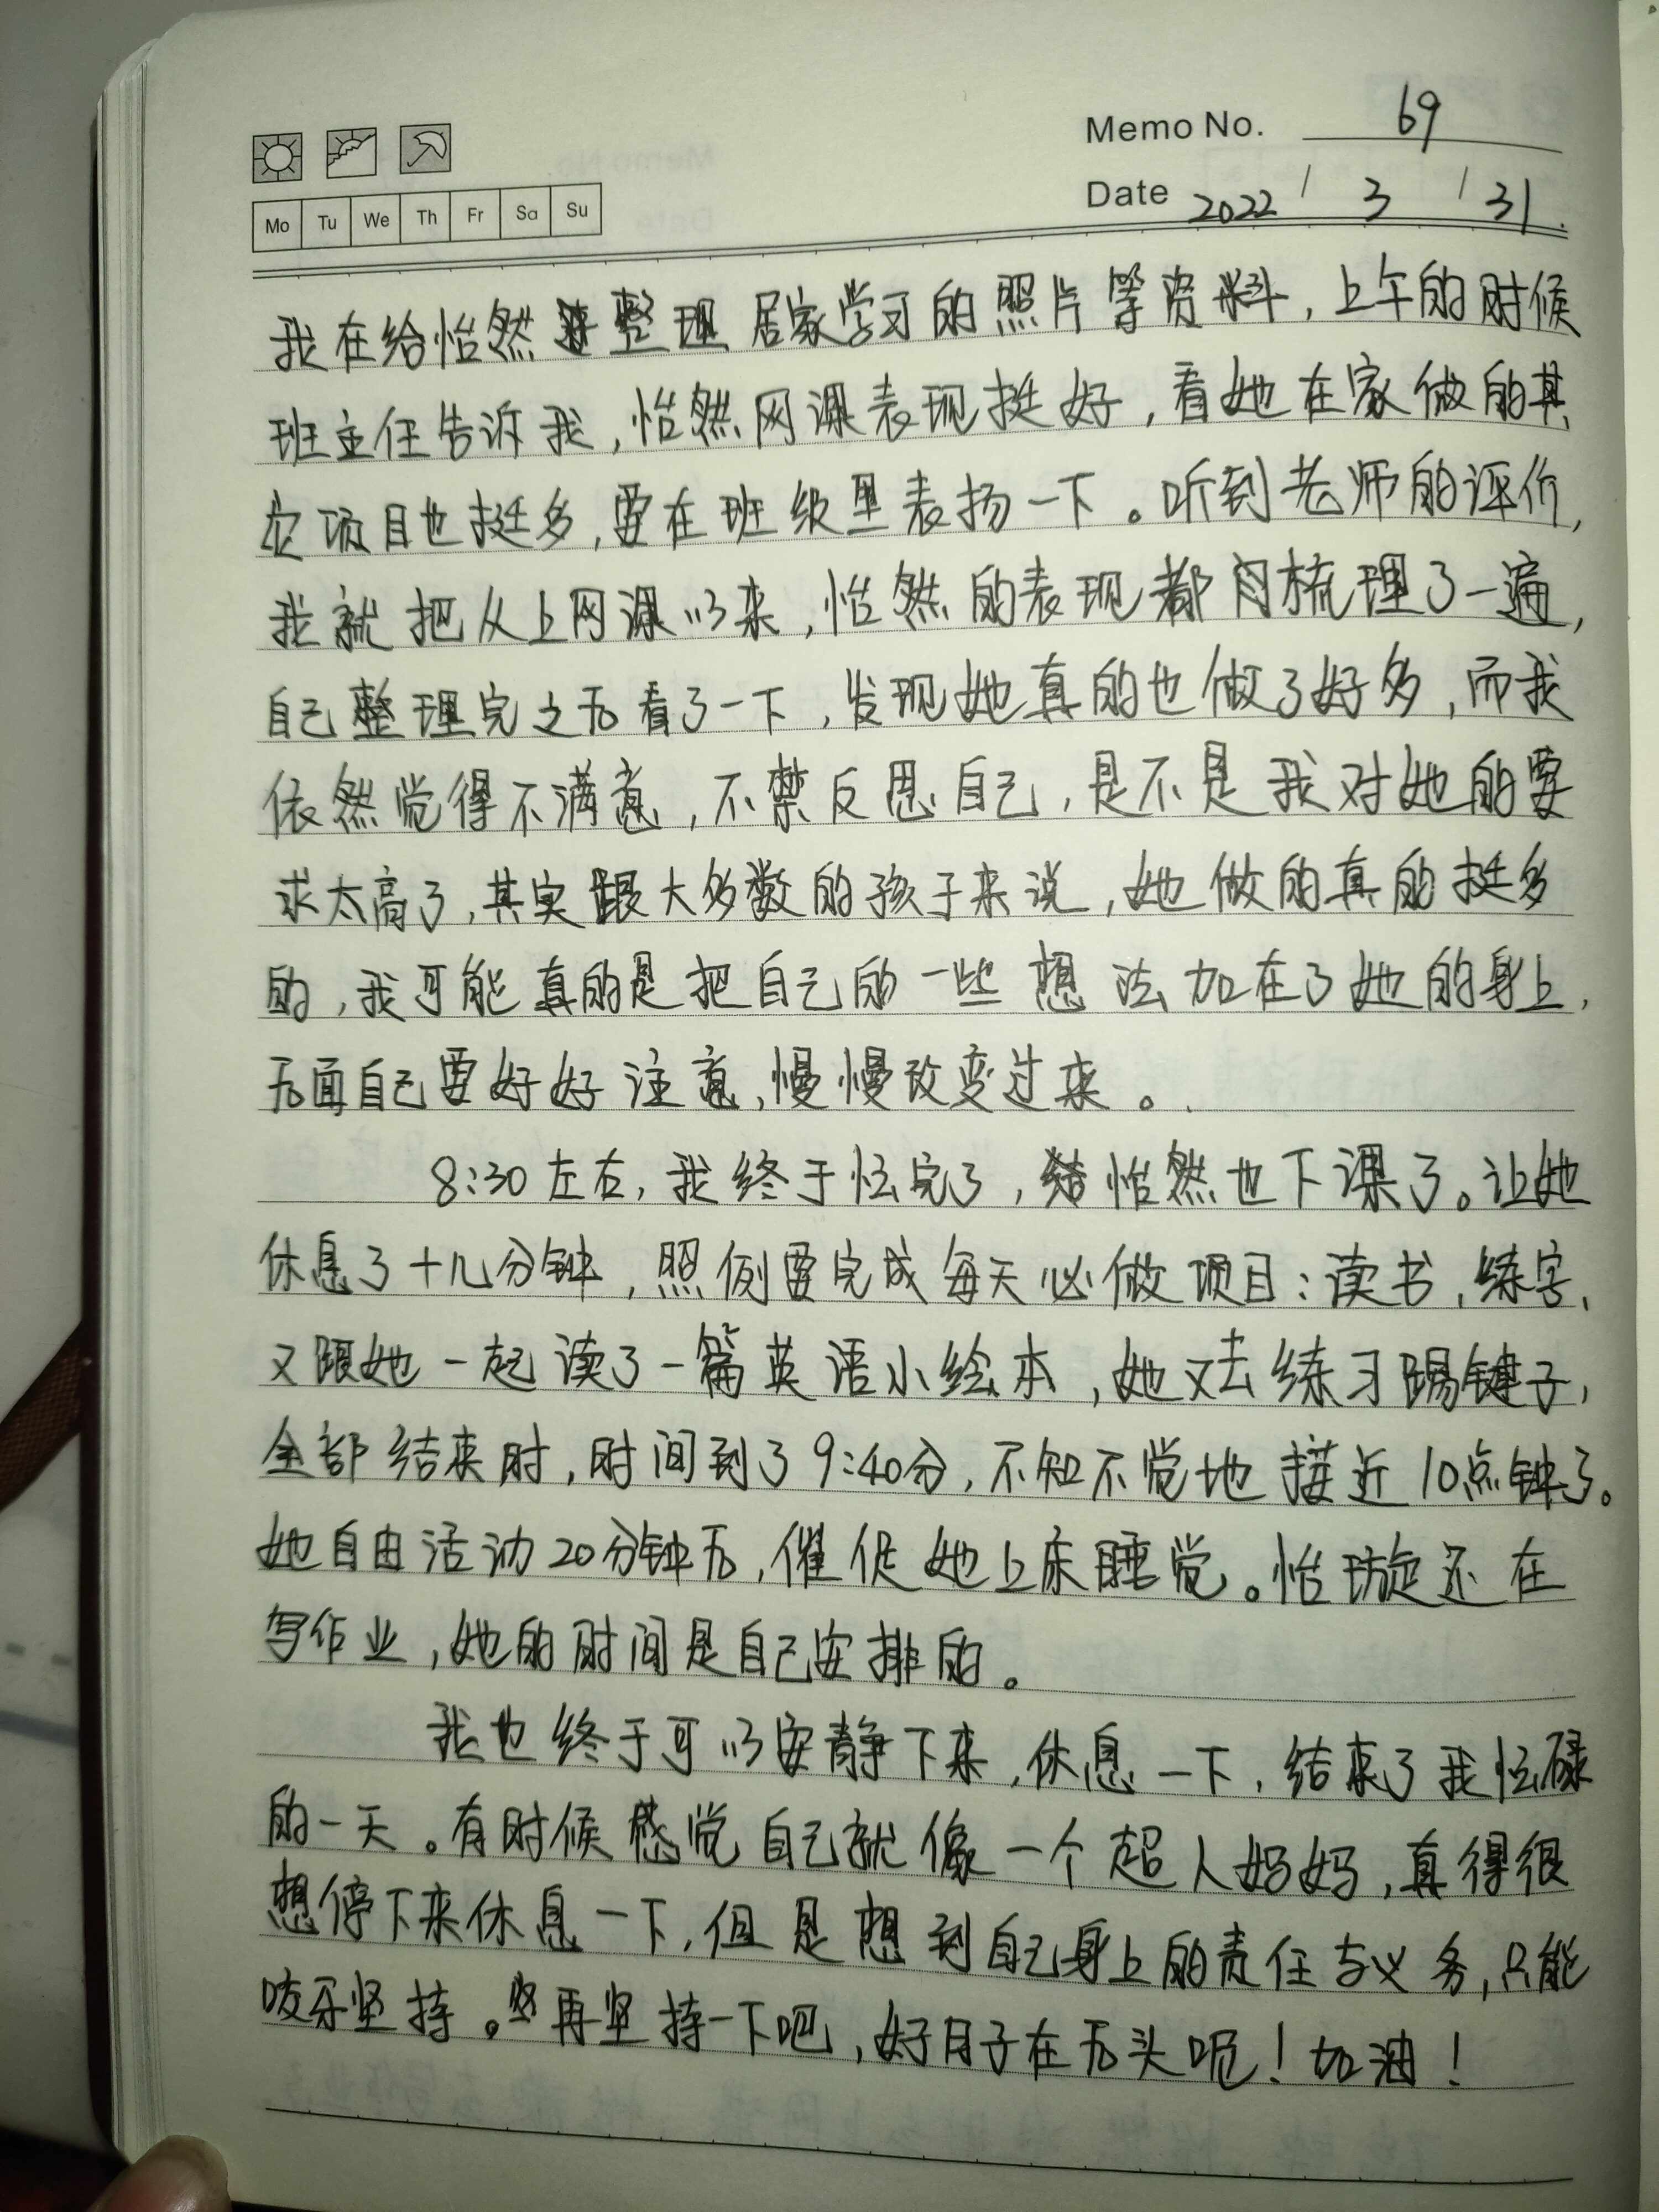 Memo No. 69
Mo Tu We Th Fr Sa Su
Date 2022 / 3 / 31.
我在给怡然整理居家学习的照片等资料，上午的时候
班主任告诉我，怡然网课表现挺好，看她在家做的其
它项目也挺多，要在班级里表扬一下。听到老师的评价，
我就把从上网课以来，怡然的表现都梳理了一遍，
自己整理完之后看了一下，发现她真的也做了好多，而我
依然觉得不满意，不禁反思自己，是不是我对她的要
求太高了，其实跟大多数的孩子来说，她做的真的挺多
的，我可能真的是把自己的一些想法加在了她的身上，
后面自己要好好注意，慢慢改变过来。
8:30左右，我终于忙完了，怡然也下课了。让她
休息了十几分钟，照例要完成每天必做项目：读书，练字，
又跟她一起读了一篇英语小绘本，她又去练习踢毽子，
全部结束时，时间到了9:40分，不知不觉地接近10点钟了。
她自由活动20分钟后，催促她上床睡觉。怡璇还在
写作业，她的时间是自己安排的。
我也终于可以安静下来，休息一下，结束了我忙碌
的一天。有时候感觉自己就像一个超人妈妈，真得很
想停下来休息一下，但是想到自己身上的责任与义务，只能
咬牙坚持。再坚持一下吧，好日子在后头呢！加油！